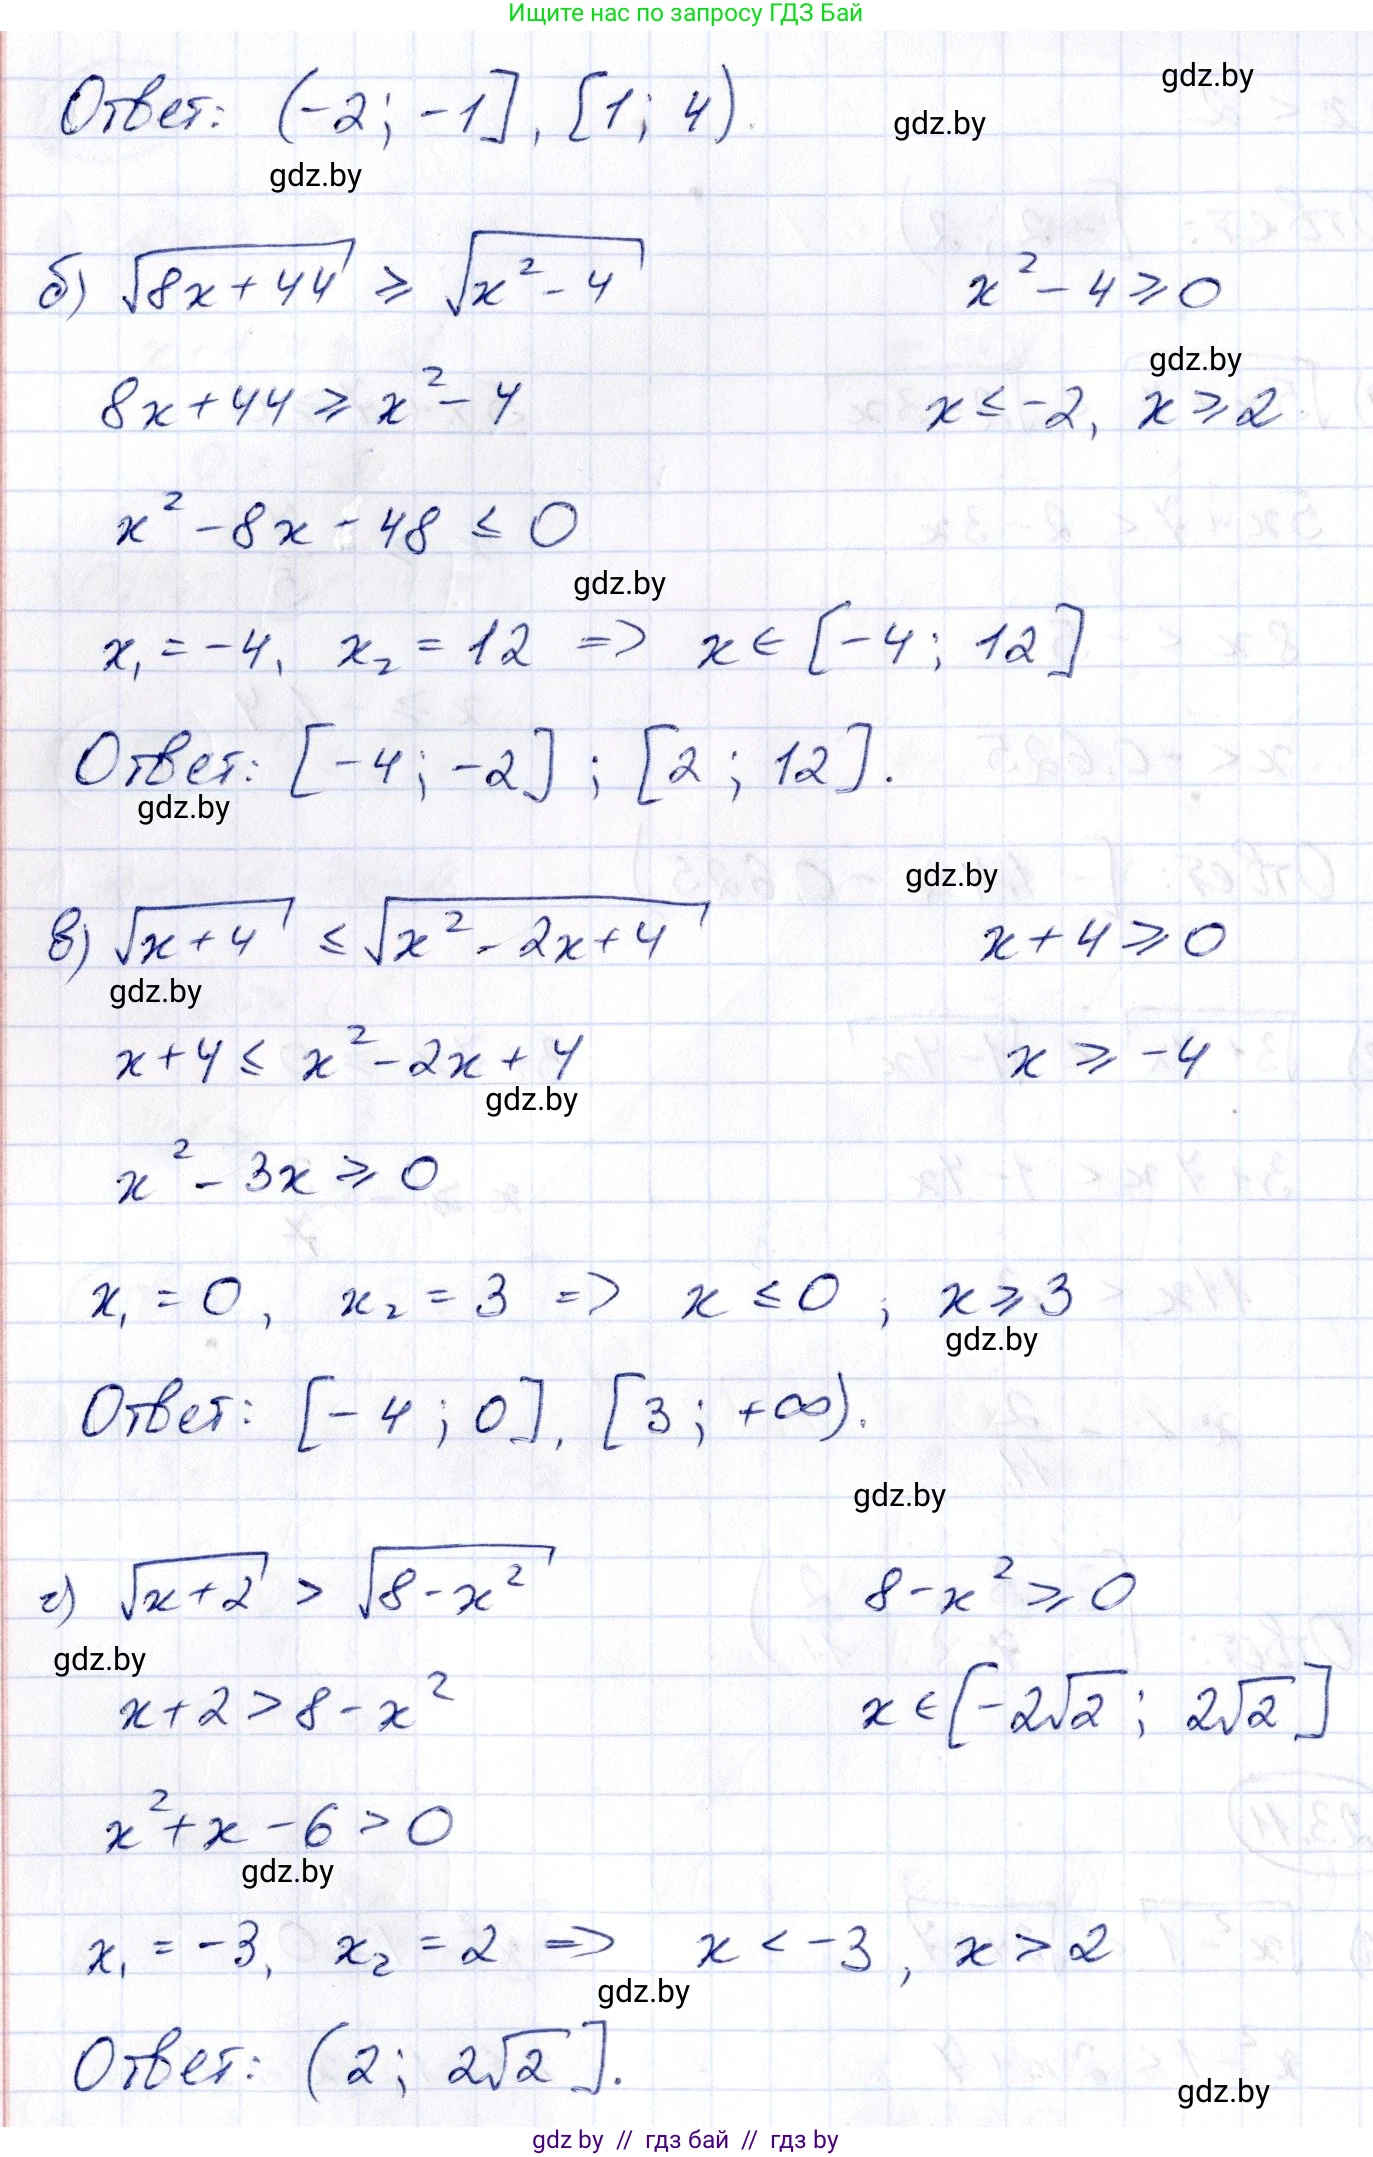 Ищите нас по запросу ГДЗ Бай
gdz.by
Ответ: (-2; -1], [1; 4).
gdz.by
gdz.by
б) √(8x+44) ⩾ √(x²-4)    x²-4⩾0
gdz.by
8x+44 ⩾ x²-4    x≤-2, x⩾2
x²-8x-48 ≤ 0
gdz.by
x₁=-4, x₂=12 => x∈[-4; 12]
Ответ: [-4; -2]; [2; 12].
gdz.by
gdz.by
в) √(x+4) ≤ √(x²-2x+4)    x+4⩾0
gdz.by
x+4 ≤ x²-2x+4    x ⩾ -4
gdz.by
x²-3x⩾0
x₁=0, x₂=3 => x≤0; x⩾3
gdz.by
Ответ: [-4; 0], [3; +∞).
gdz.by
г) √(x+2) > √(8-x²)    8-x²⩾0
gdz.by
x+2>8-x²    x∈[-2√2; 2√2]
x²+x-6>0
gdz.by
x₁=-3, x₂=2 => x<-3, x>2
gdz.by
Ответ: (2; 2√2].
gdz.by
gdz by // гдз бай // гдз by